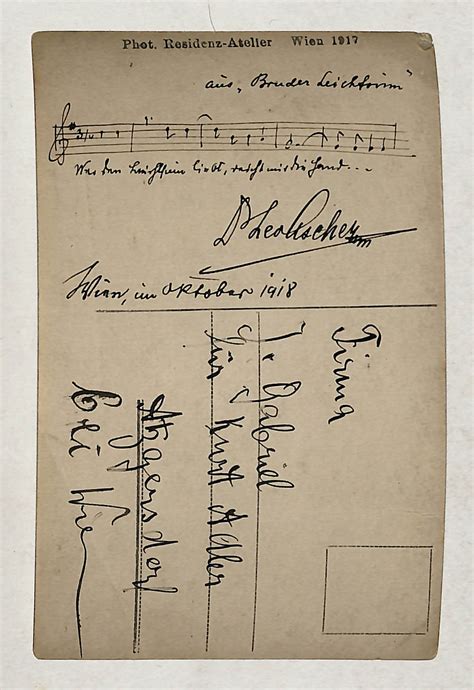 Phot. Residenz-Atelier Wien 1917
aus „Bruder Leichtsinn"
Wer den Leichtsinn liebt, reicht mir die Hand...
Dr Leo Ascher
Wien, im Oktober 1918
Firma
J. Gabriel
für Kurt Adler
Atzgersdorf
bei Wien